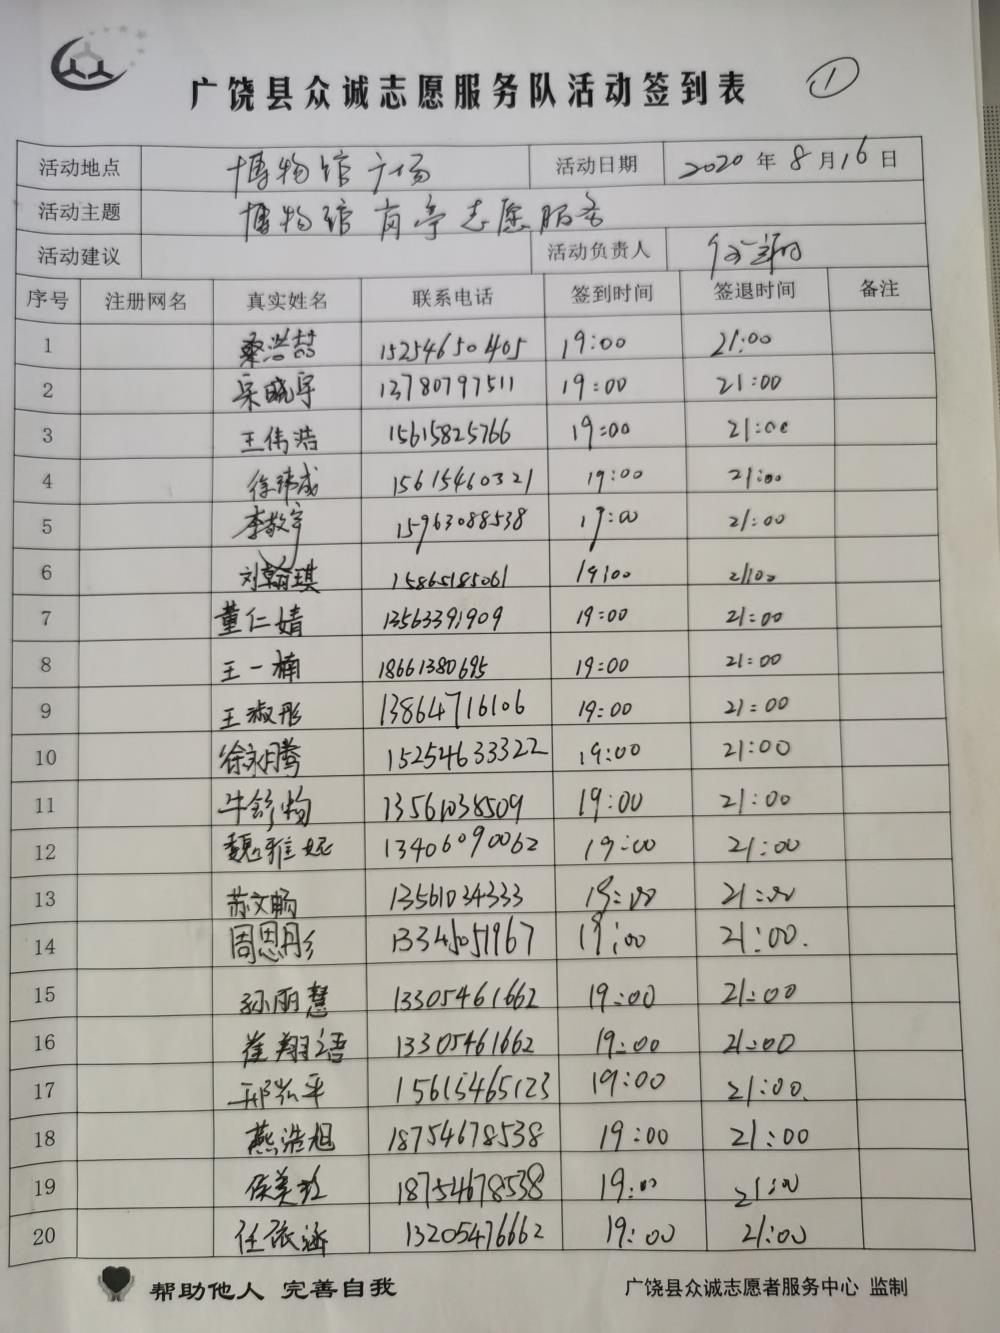 广饶县众诚志愿服务队活动签到表 ①
活动地点 博物馆广场 活动日期 2020年8月16日
活动主题 博物馆岗亭志愿服务
活动建议 活动负责人
序号 注册网名 真实姓名 联系电话 签到时间 签退时间 备注
1 桑浩喆 15254650405 19:00 21:00
2 宋晓宇 13780797511 19:00 21:00
3 王伟浩 15615825766 19:00 21:00
4 徐玮成 15615460321 19:00 21:00
5 李敬宇 15963088538 19:00 21:00
6 刘翰琪 15865185061 19:00 21:00
7 董仁婧 13563391909 19:00 21:00
8 王一楠 18661380695 19:00 21:00
9 王淑彤 13864716106 19:00 21:00
10 徐永腾 15254633322 19:00 21:00
11 牛舒 13561038509 19:00 21:00
12 魏雅妮 13406090062 19:00 21:00
13 苏文畅 13561034333 19:00 21:00
14 周恩彤 13345051967 19:00 21:00.
15 孙丽慧 13305461662 19:00 21:00
16 崔翔语 13305461662 19:00 21:00
17 邢弘平 15615465123 19:00 21:00.
18 燕浩旭 18754678538 19:00 21:00
19 侯美 18754678538 19:00 21:00
20 任依涵 13205476662 19:00 21:00
帮助他人 完善自我 广饶县众诚志愿者服务中心 监制